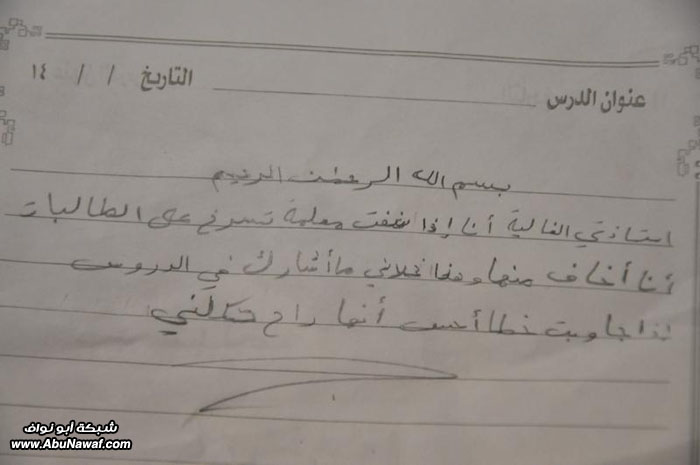 عنوان الدرس التاريخ / / ١٤
بسم الله الرحمن الرحيم
استاذتي الغالية أنا إذا شفت معلمة تسرخ على الطالبات
أنا أخاف منها وهذا خلاني ما أشارك في الدروس
إذا جاوبت خطا أحس أنها راح تكلني
شبكة أبو نواف
www.AbuNawaf.com